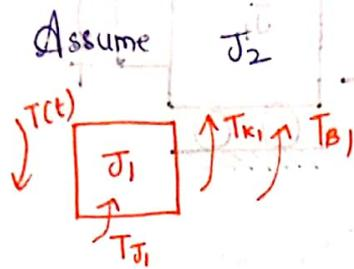 Assume J2
T(t)
TK1 TB1
J1
TJ1